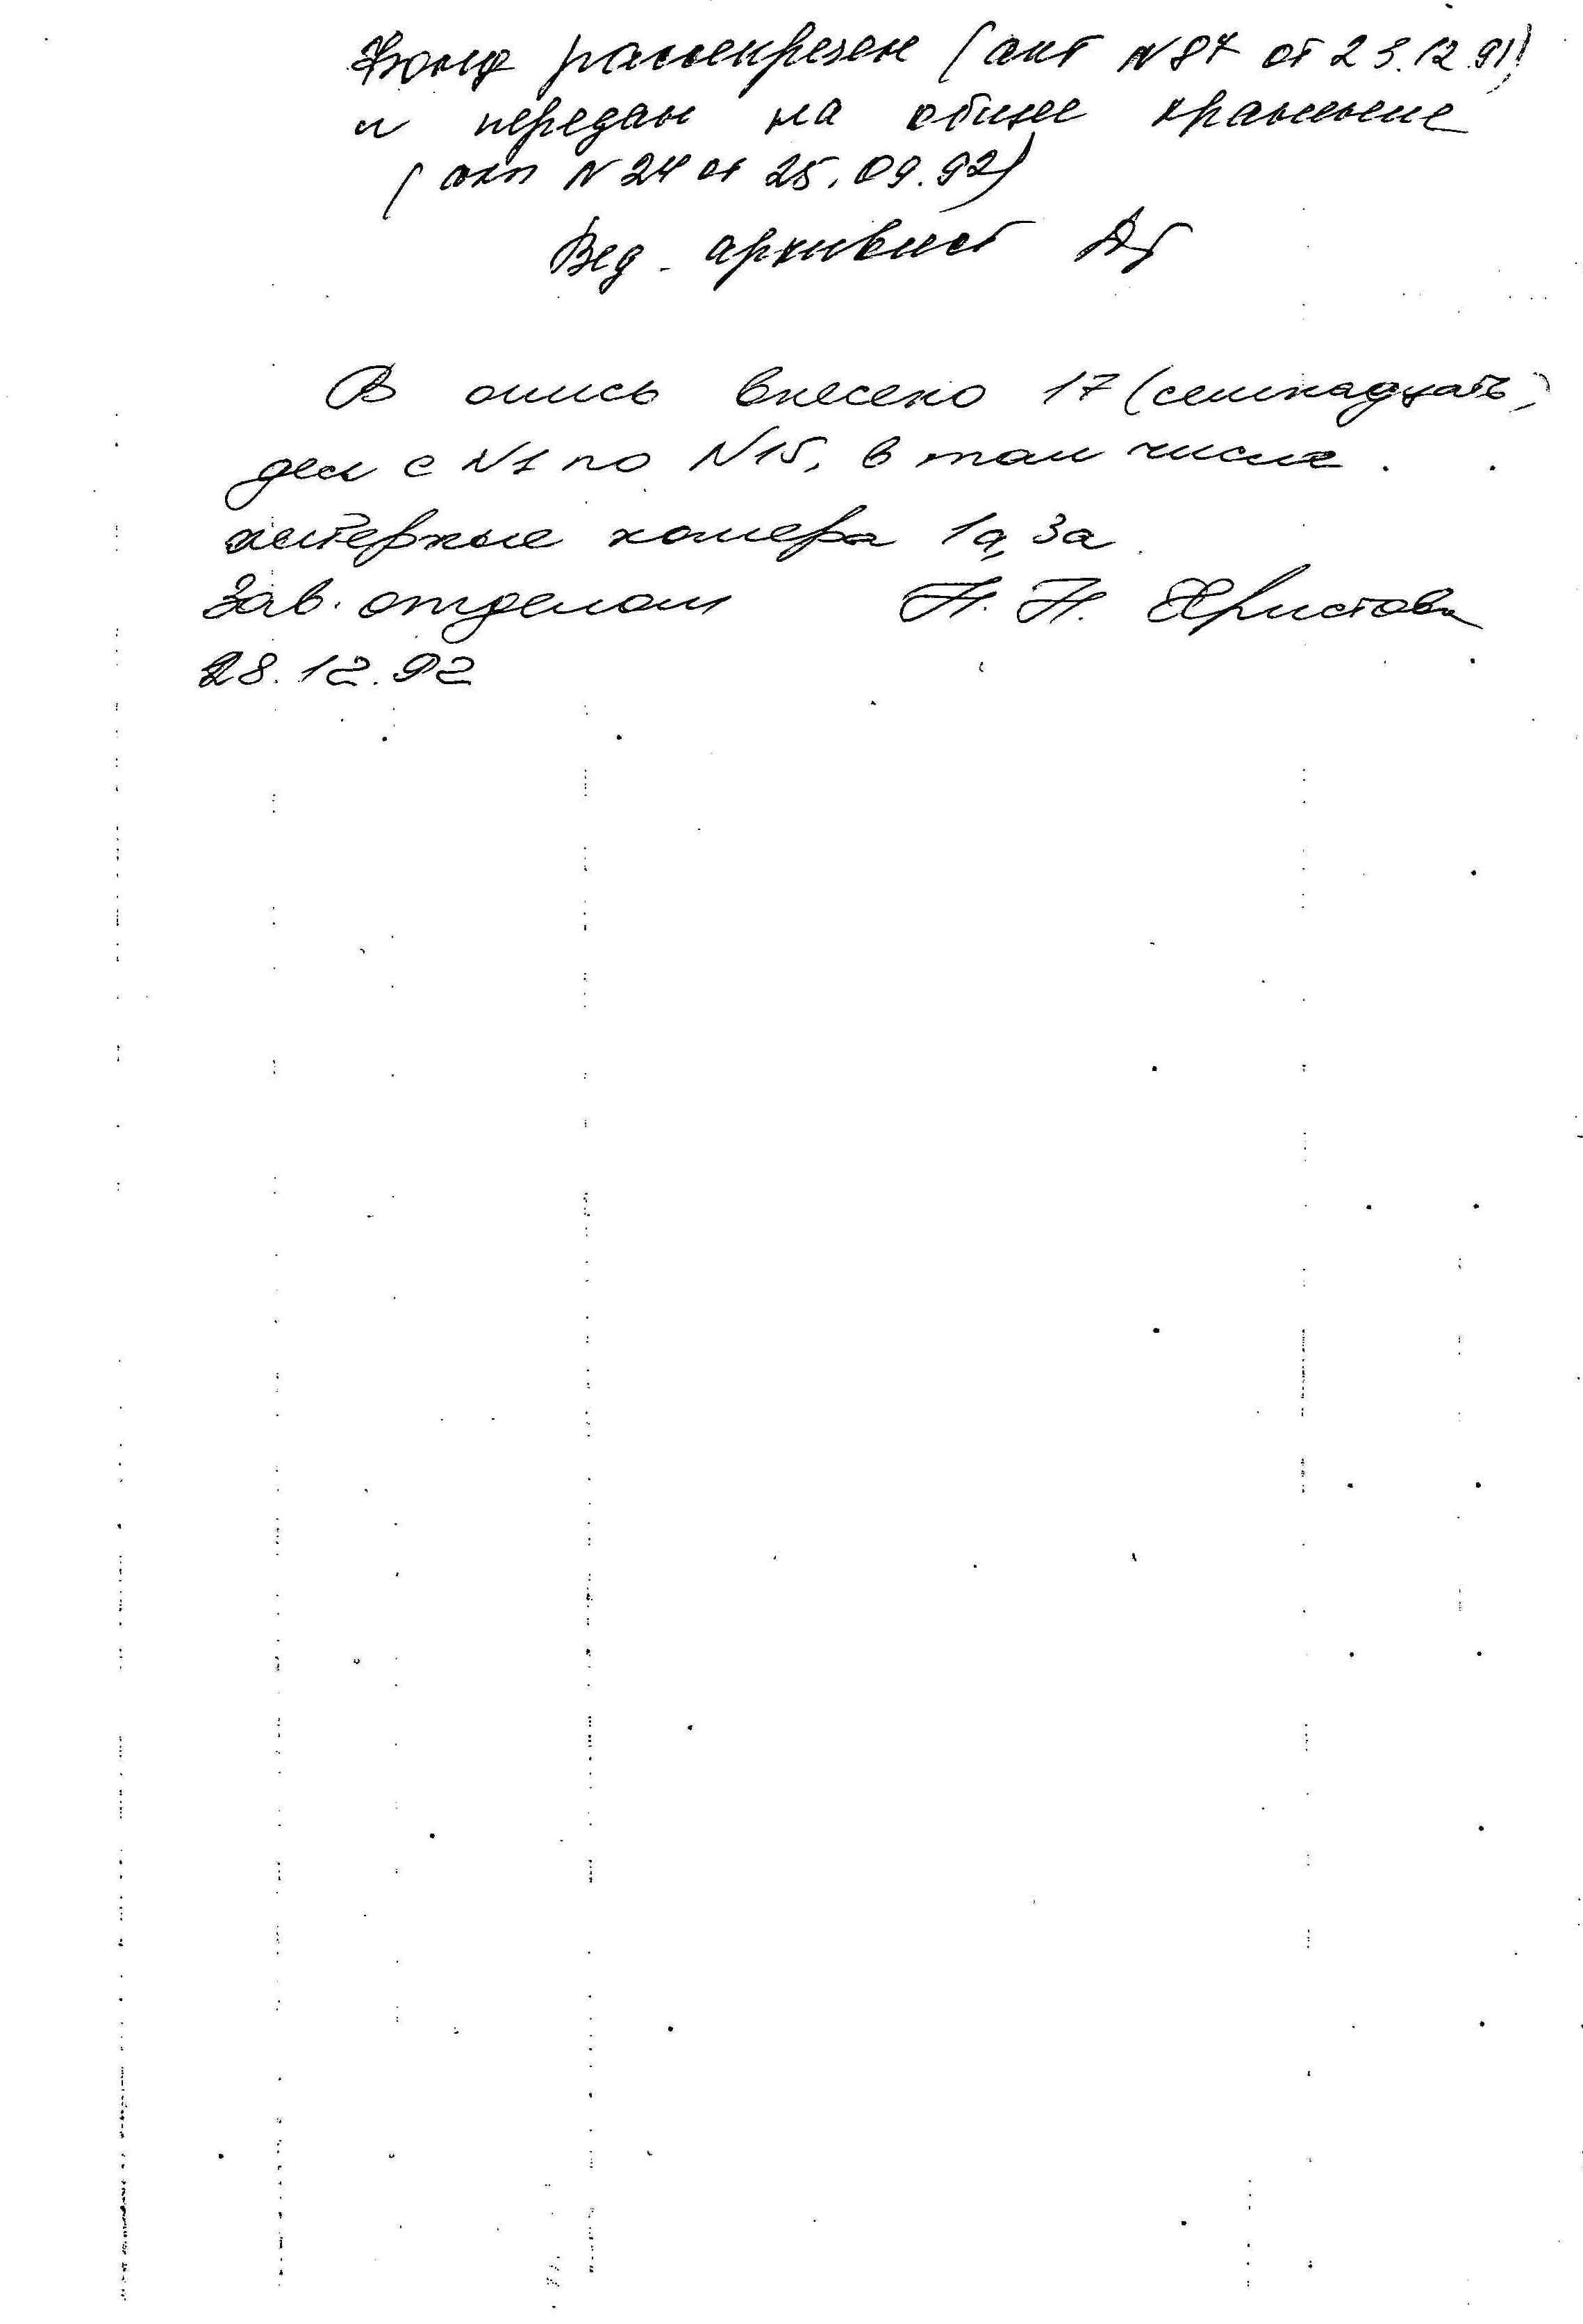 Фонд рассекречен (акт N 87 от 23.12.91)
и передан на общее хранение
(акт N 24 от 25.09.92)
Вед. архивист
В опись внесено 17 (семнадцать)
дел с N1 по N15, в том числе
литерные номера 1а, 3а
Зав. отделом Н. Н. Христова
28.12.92